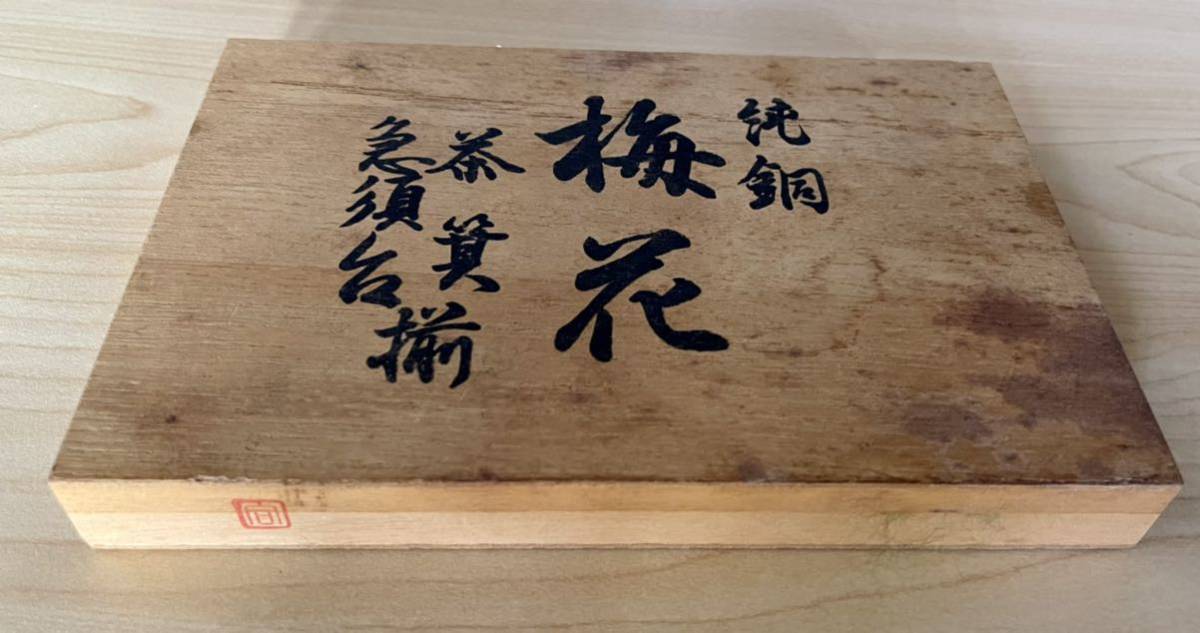 純銅
梅花
茶箕
急須台
揃